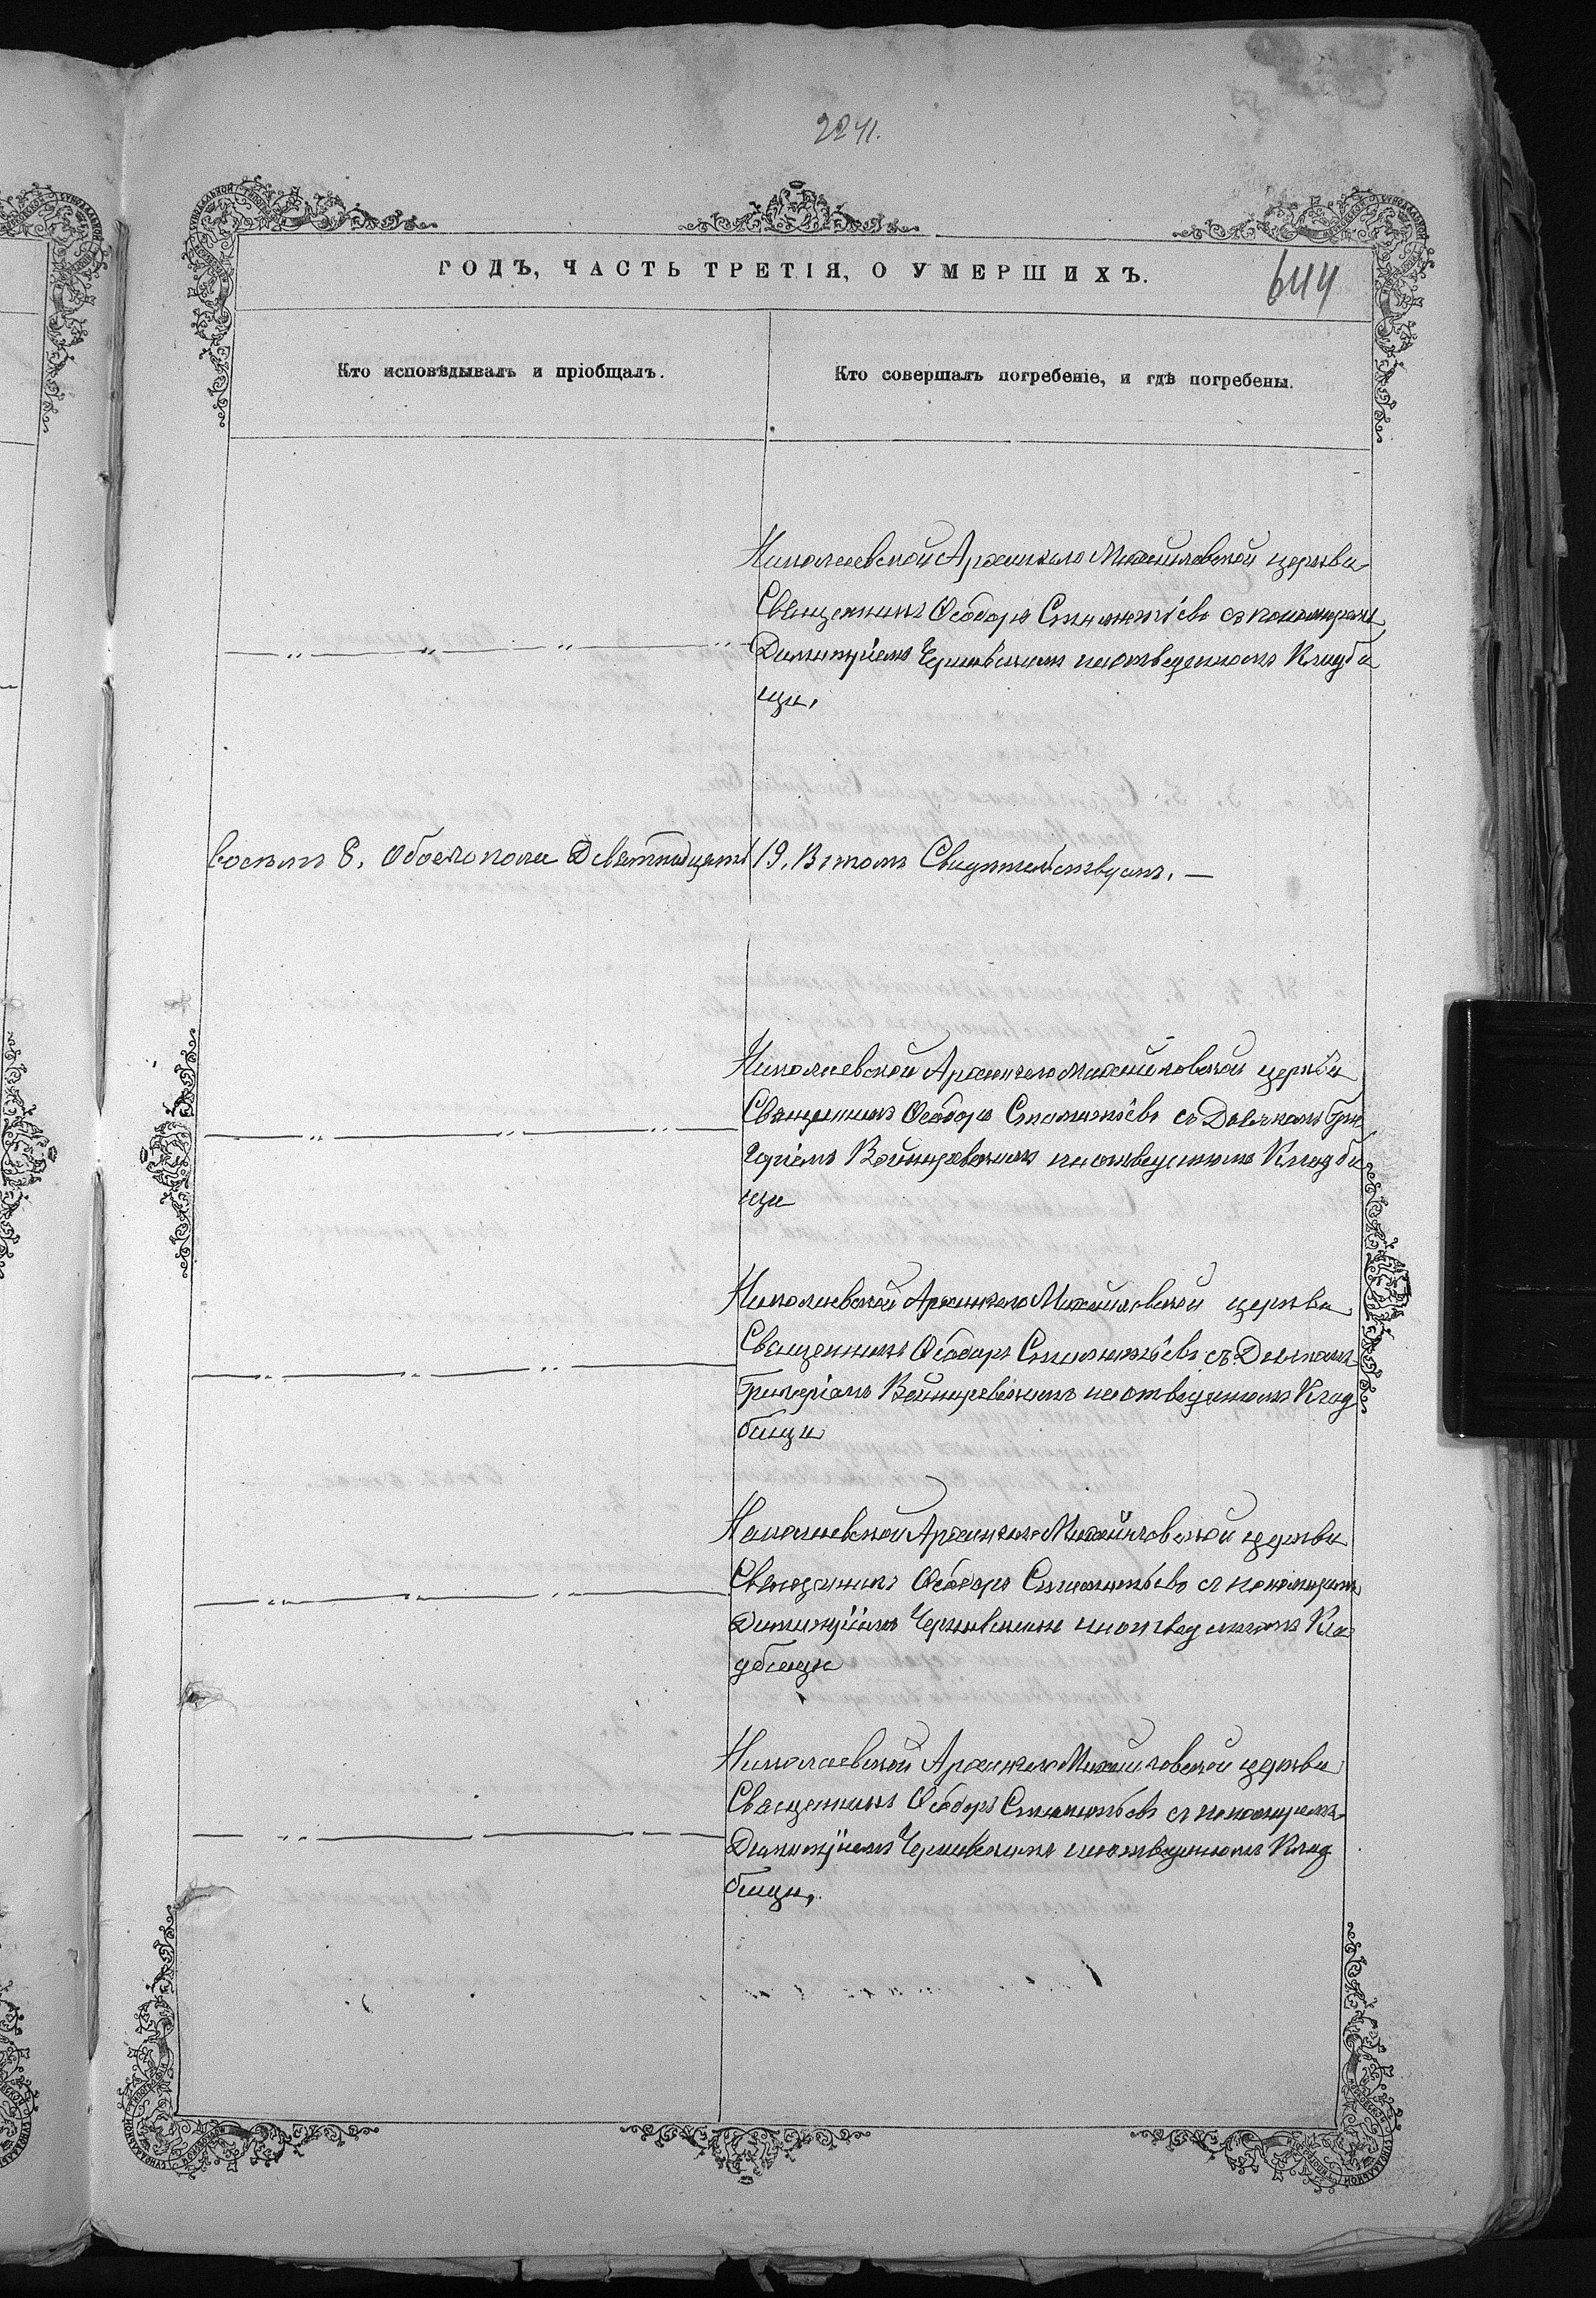 2241.
ГОДЪ, ЧАСТЬ ТРЕТІЯ, О УМЕРШИХЪ.
644
Кто исповѣдывалъ и пріобщалъ.
Кто совершалъ погребеніе, и гдѣ погребены.
Николаевской Архангело Михайловской церкви
Священникъ Ѳеодоръ съ пономаремъ
Димитріемъ Чернявскимъ на отведенномъ Кладби
щи.
восемь 8. Обоего пола Девятнадцать 19. В томъ Свидѣтельствуемъ. —
Николаевской Архангело Михайловской церкви
Священникъ Ѳеодоръ съ Дьячкомъ Гри
горіемъ на отведенномъ Кладби
щи
Николаевской Архангело Михайловской церкви
Священникъ Ѳеодоръ съ Дьячкомъ
Григоріемъ на отведенномъ Клад
бищи
Николаевской Архангело Михайловской церкви
Священникъ Ѳеодоръ с пономаремъ
Димитріемъ Чернявскимъ на отведенномъ Кла
дбищи
Николаевской Архангело Михайловской церкви
Священникъ Ѳеодоръ с пономаремъ
Димитріемъ Чернявскимъ на отведенномъ Клад
бищи.